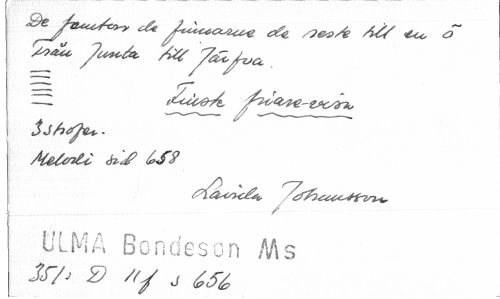 De femton de finnarne de reste till en ö
från Junta till Järfva.
Finsk friare-visa
3 strofer.
Melodi sid 658
Lovisa Johansson
ULMA Bondeson Ms
351: D 11 f s 656